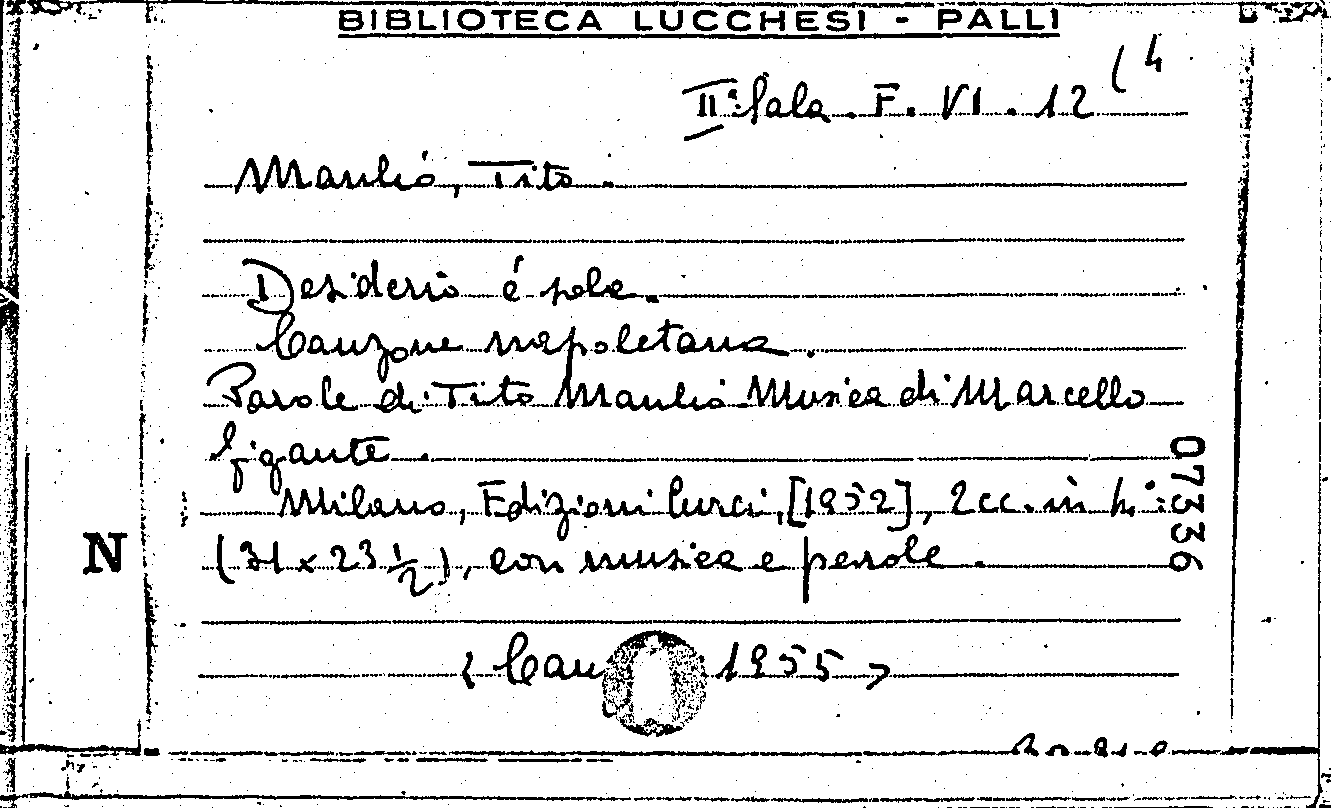 BIBLIOTECA LUCCHESI - PALLI
IIª Sala. F. VI. 12 (4
Manlio, Tito.
Desiderio é sole.
Canzone napoletana.
Parole di Tito Manlio Musica di Marcello
Gigante.
Milano, Edizioni Curci, [1952], 2cc. in
(31 x 23 1/2), con musica e parole.
N
07336
1955 >